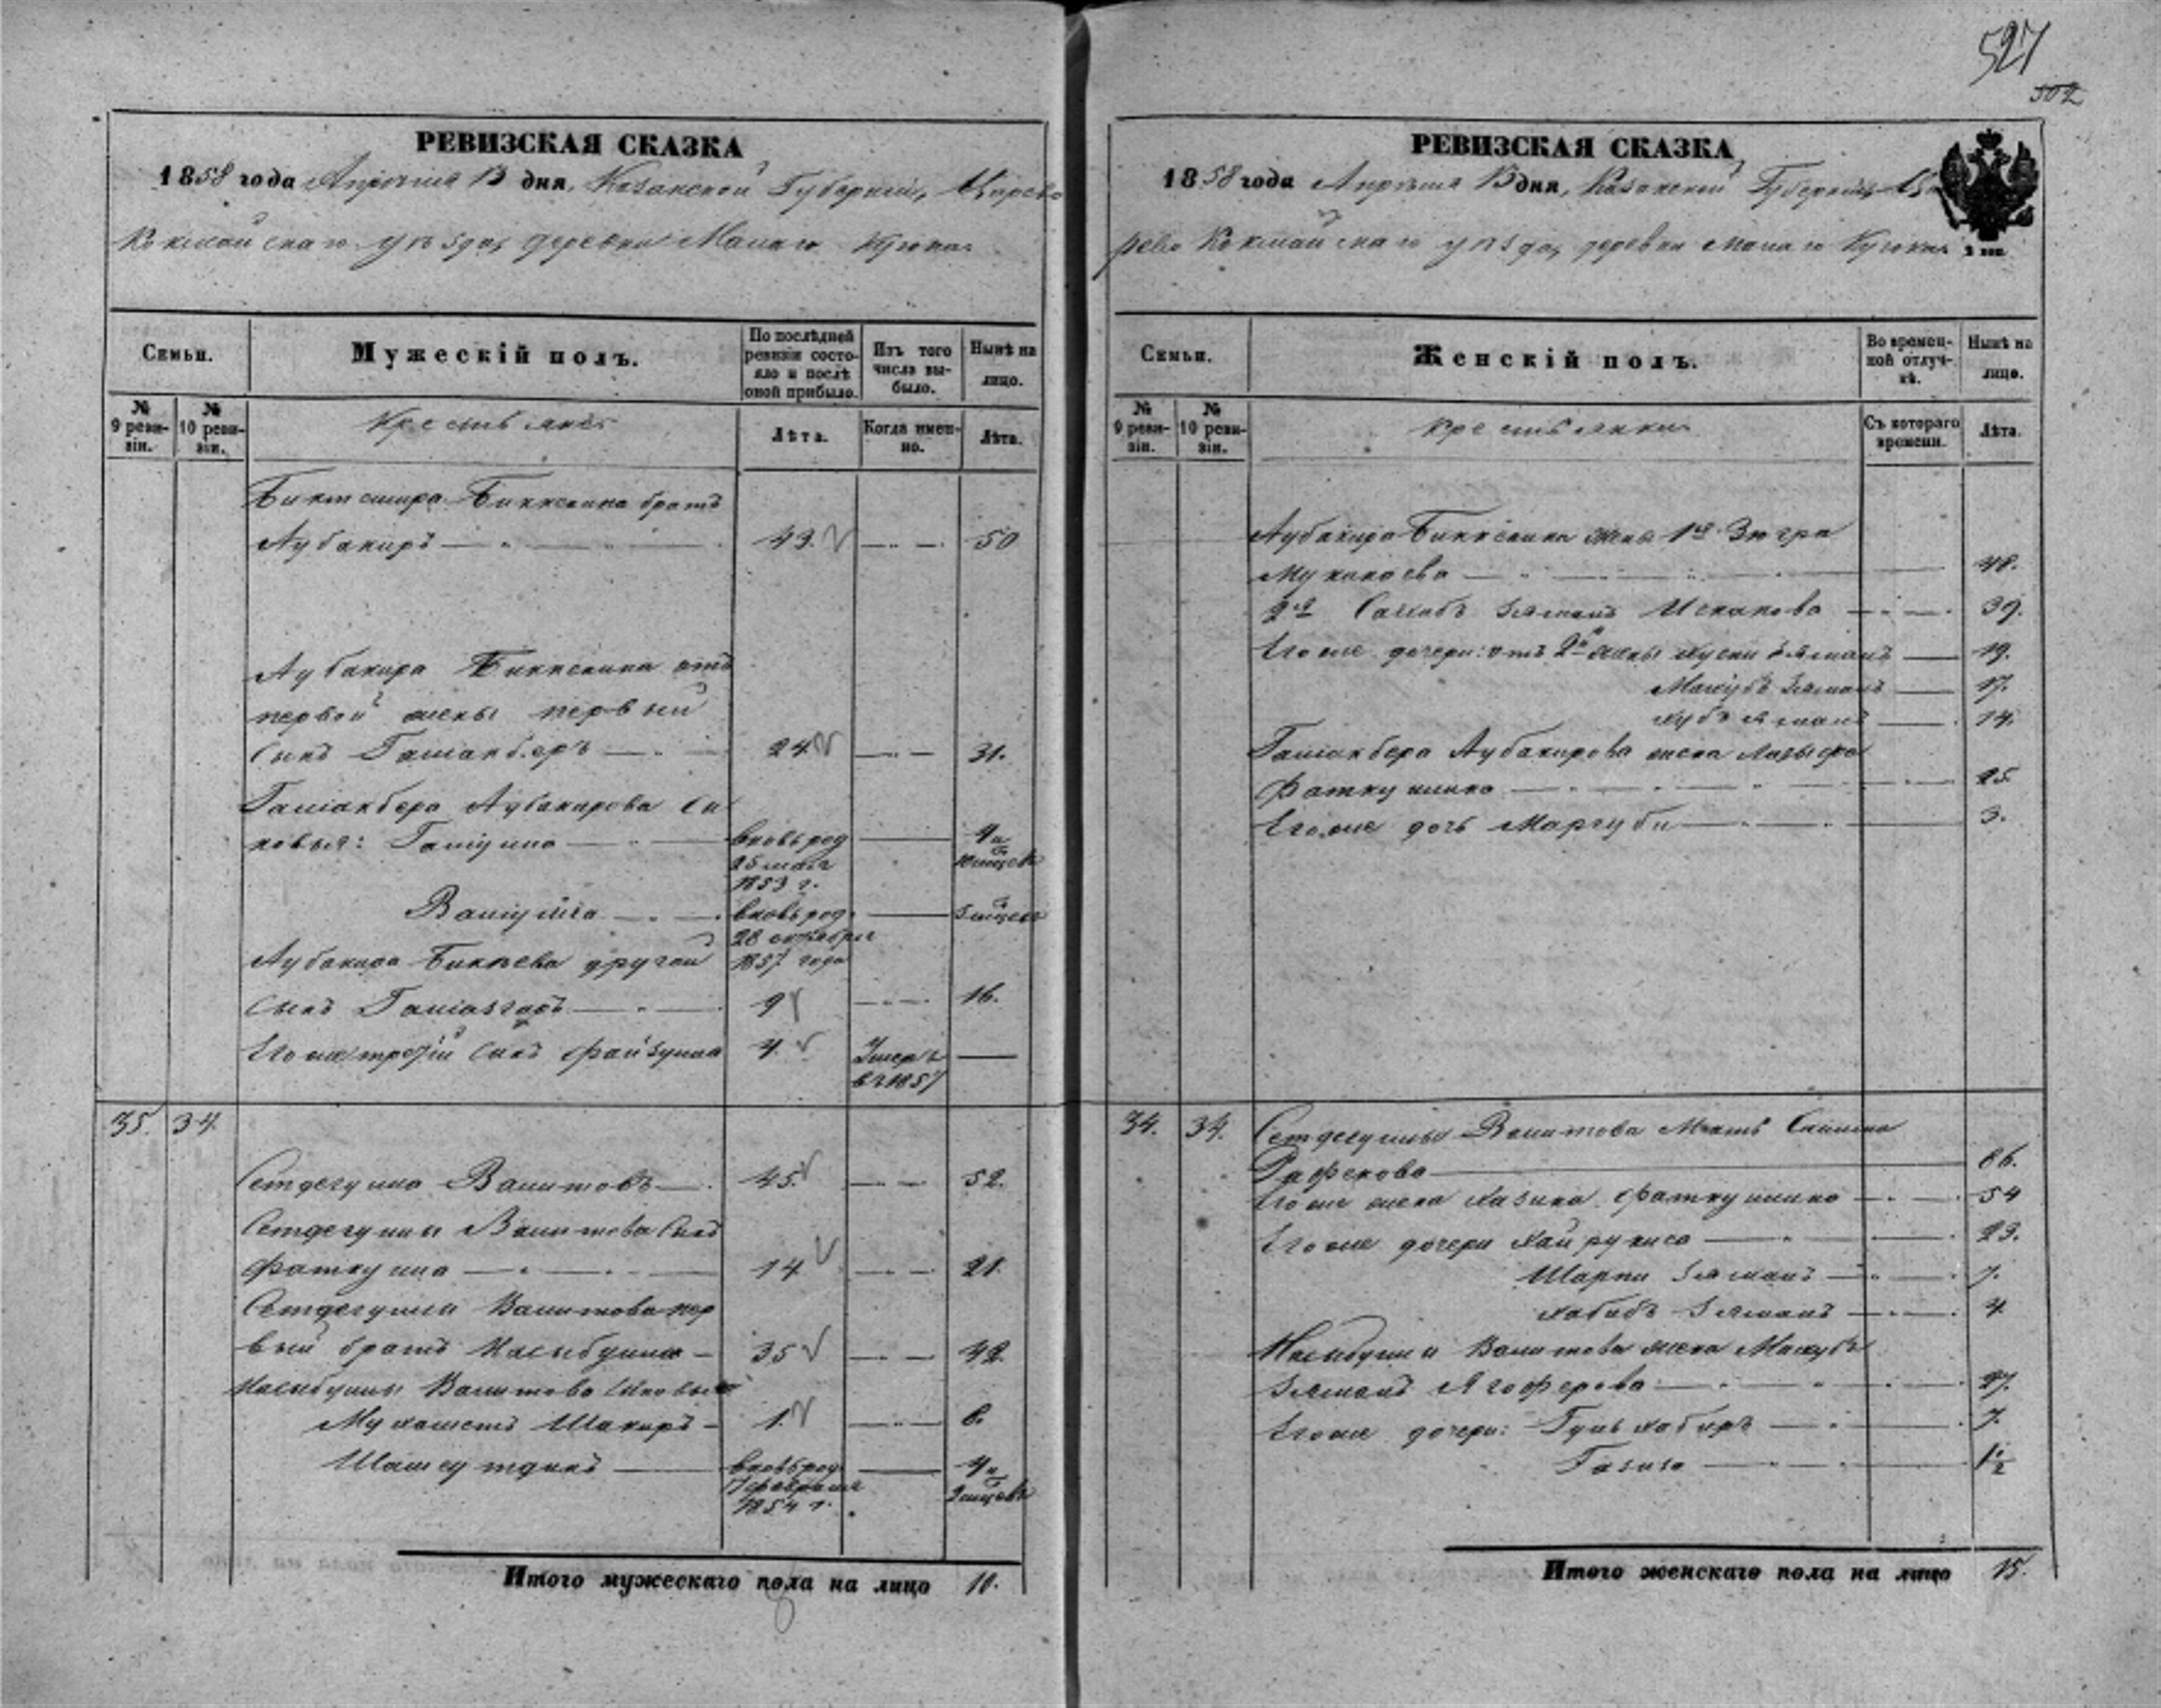 527
502
РЕВИЗСКАЯ СКАЗКА
1858 года Апреля 13 дня, Казанской Губернiи, Царево
Кокшайскаго уѣзда, деревни Малаго Кугуна
Семьи.
Мужескiй полъ.
По послѣдней ревизiи состояло и послѣ оной прибыло.
Изъ того числа выбыло.
Нынѣ на лицо.
№ 9 ревизiи.
№ 10 ревизiи.
Крестьяне
Лѣта.
Когда именно.
Лѣта.
Бикт��мира Биккенина братъ
Аубакиръ 43. 50
Аубакира Биккенина отъ
первой жены первый
сынъ Галiакберъ 24 31.
Галiакбера Аубакирова сы
новья: Галiулла вновь род 4 и
25 мая 10 мѣсяцевъ
1853 г.
Валiулла вновь род. 5 мѣсяц
28 октября
Аубакира Бикѣева другой 1857 года
сынъ Галiазгаръ 9 16.
Его же третiй сынъ Файзулла 4. Умеръ
въ 1857
35. 34.
Сетдегулла Валитовъ 45. 52.
Сетдегуллы Валитова сынъ
Фаткулла 14 21.
Сетдегуллы Валитова пер
вый братъ Насыбулла 35 42.
Насыбуллы Валитова сыновья
Мухаметъ Шакиръ 1. 8.
вновь род. 4 и
7 февраля 2 мѣсяц
1854 г.
Итого мужескаго пола на лицо 10.
РЕВИЗСКАЯ СКАЗКА
1858 года Апрѣля 13 дня, Казанской Губернiи, Ца
рево Кокшайскаго уѣзда, деревни Малаго Кугуна
Семьи.
Женскiй полъ.
Во временной отлучкѣ.
Нынѣ на лицо.
№ 9 ревизiи.
№ 10 ревизiи.
Крестьянки
Съ котораго времени.
Лѣта.
Аубакира Биккенина жена 1я Зюгра
48.
2я Сахибъ Зямалъ Исхакова 39.
Его же дочери: отъ 2й жены Хусни Зямалъ 19.
Махубъ Зямалъ 17.
14.
Галiакбера Аубакирова жена
Фаткуллина 25.
Его же дочь Маргуби 3.
34. 34.
Сетдегуллы Валитова Мать
66.
Его же жена Хазина Фаткуллина 54
Его же дочери Хайруниса 23.
Шарпи Зямалъ 7.
Хабибъ Зямалъ 4
Насыбуллы Валитова жена Махубъ
Зямалъ Ягоферова 27.
Его же дочери: 7.
Газиза 1 1/2
Итого женскаго пола на лицо 15.